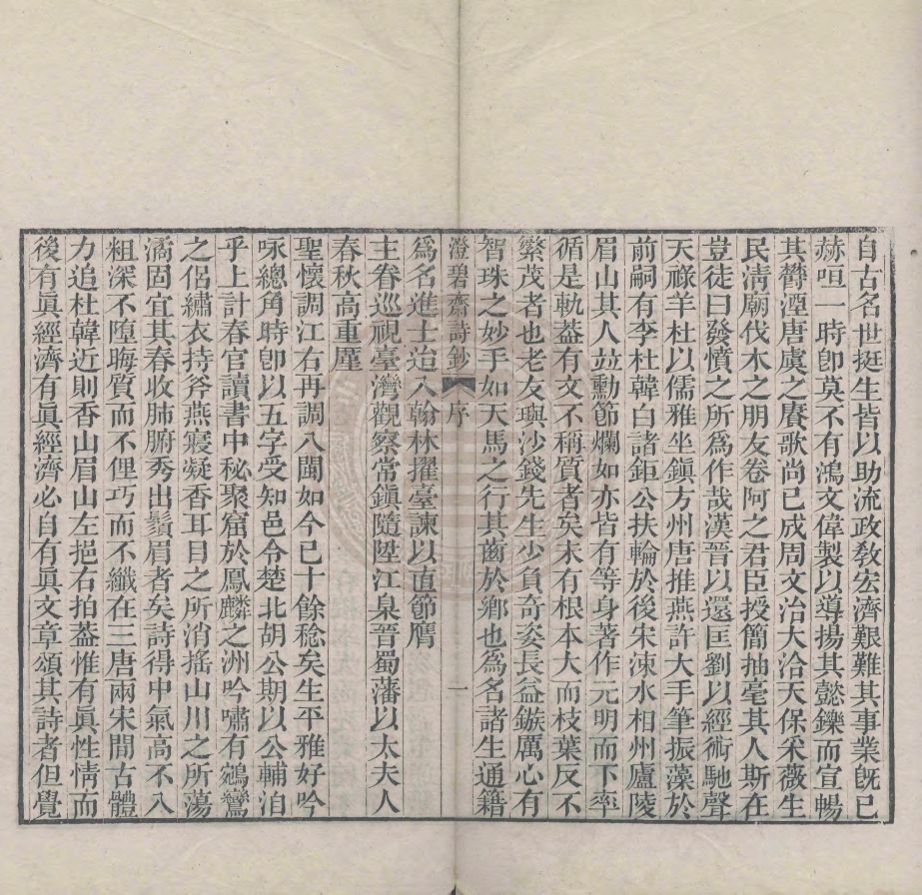 自古名世挺生皆以助流政敎宏濟艱難其事業旣已
赫咺一時卽莫不有鴻文偉製以導揚其懿鑠而宣暢
其欝湮唐虞之賡歌尚已成周文治大洽天保采薇生
民淸廟伐木之朋友卷阿之君臣授簡抽毫其人斯在
豈徒曰發憤之所爲作哉漢晉以還匡劉以經術馳聲
天祿羊杜以儒雅坐鎭方州唐推燕許大手筆振藻於
前嗣有李杜韓白諸鉅公扶輪於後宋涑水相州廬陵
眉山其人並勳節爛如亦皆有等身著作元明而下率
循是軌葢有文不稱質者矣未有根本大而枝葉反不
繁茂者也老友璵沙錢先生少負奇姿長益鏃厲心有
智珠之妙手如天馬之行其齒於鄕也爲名諸生通籍
澄碧齋詩鈔 序 一
爲名進士迨入翰林擢臺諫以直節膺
主眷巡視臺灣觀察常鎭隨陞江臬晉蜀藩以太夫人
春秋高重廑
聖懷調江右再調八閩如今已十餘稔矣生平雅好吟
咏總角時卽以五字受知邑令楚北胡公期以公輔洎
乎上計春官讀書中秘聚窟於鳳麟之洲吟嘯有鵷鸞
之侶繡衣持斧燕寢凝香耳目之所消搖山川之所蕩
潏固宜其春收肺腑秀出鬚眉者矣詩得中氣高不入
粗深不墮晦質而不俚巧而不纖在三唐兩宋間古體
力追杜韓近則香山眉山左挹右拍葢惟有眞性情而
後有眞經濟有眞經濟必自有眞文章頌其詩者但覺